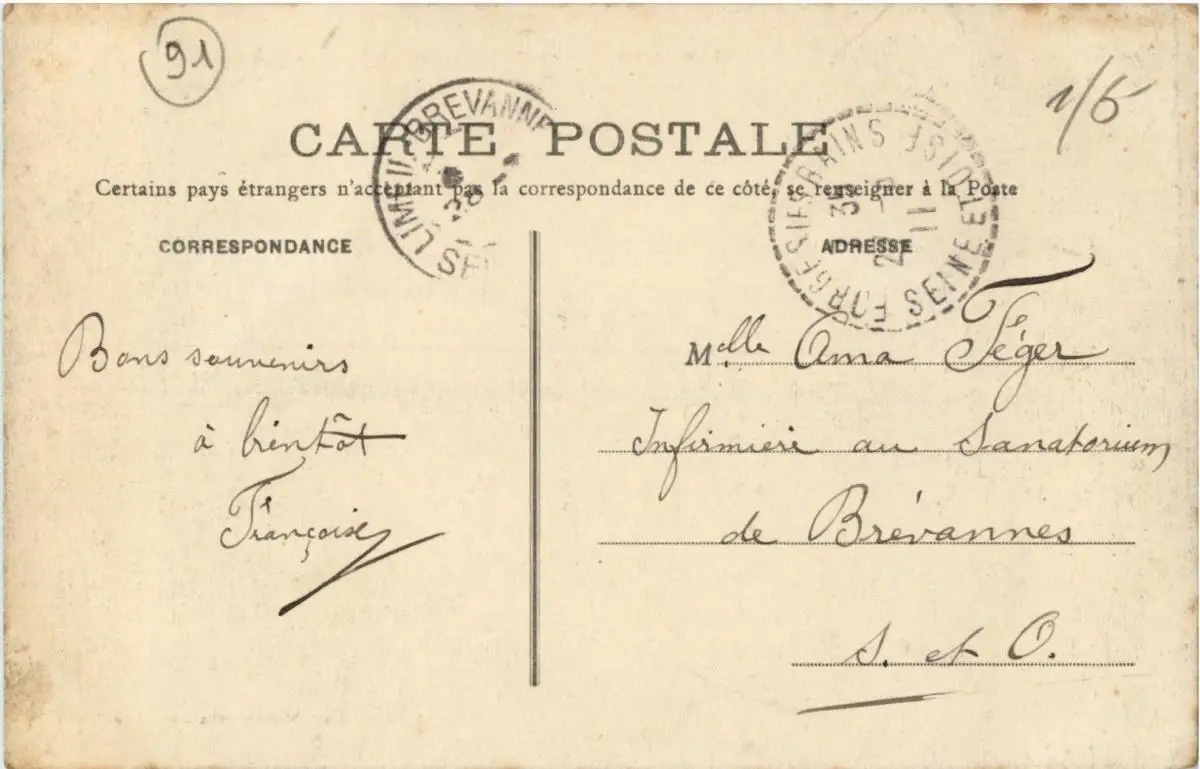 91
1/5
CARTE POSTALE
Certains pays étrangers n'acceptant pas la correspondance de ce côté, se renseigner à la Poste
CORRESPONDANCE
ADRESSE
LIMEIL-BREVANNE
28
FORGES-LES-BAINS
SEINE ET OISE
11
Bons souvenirs
à bientôt
Françoise
Melle Ama Féger
Infirmière au Sanatorium
de Brévannes
S. et O.